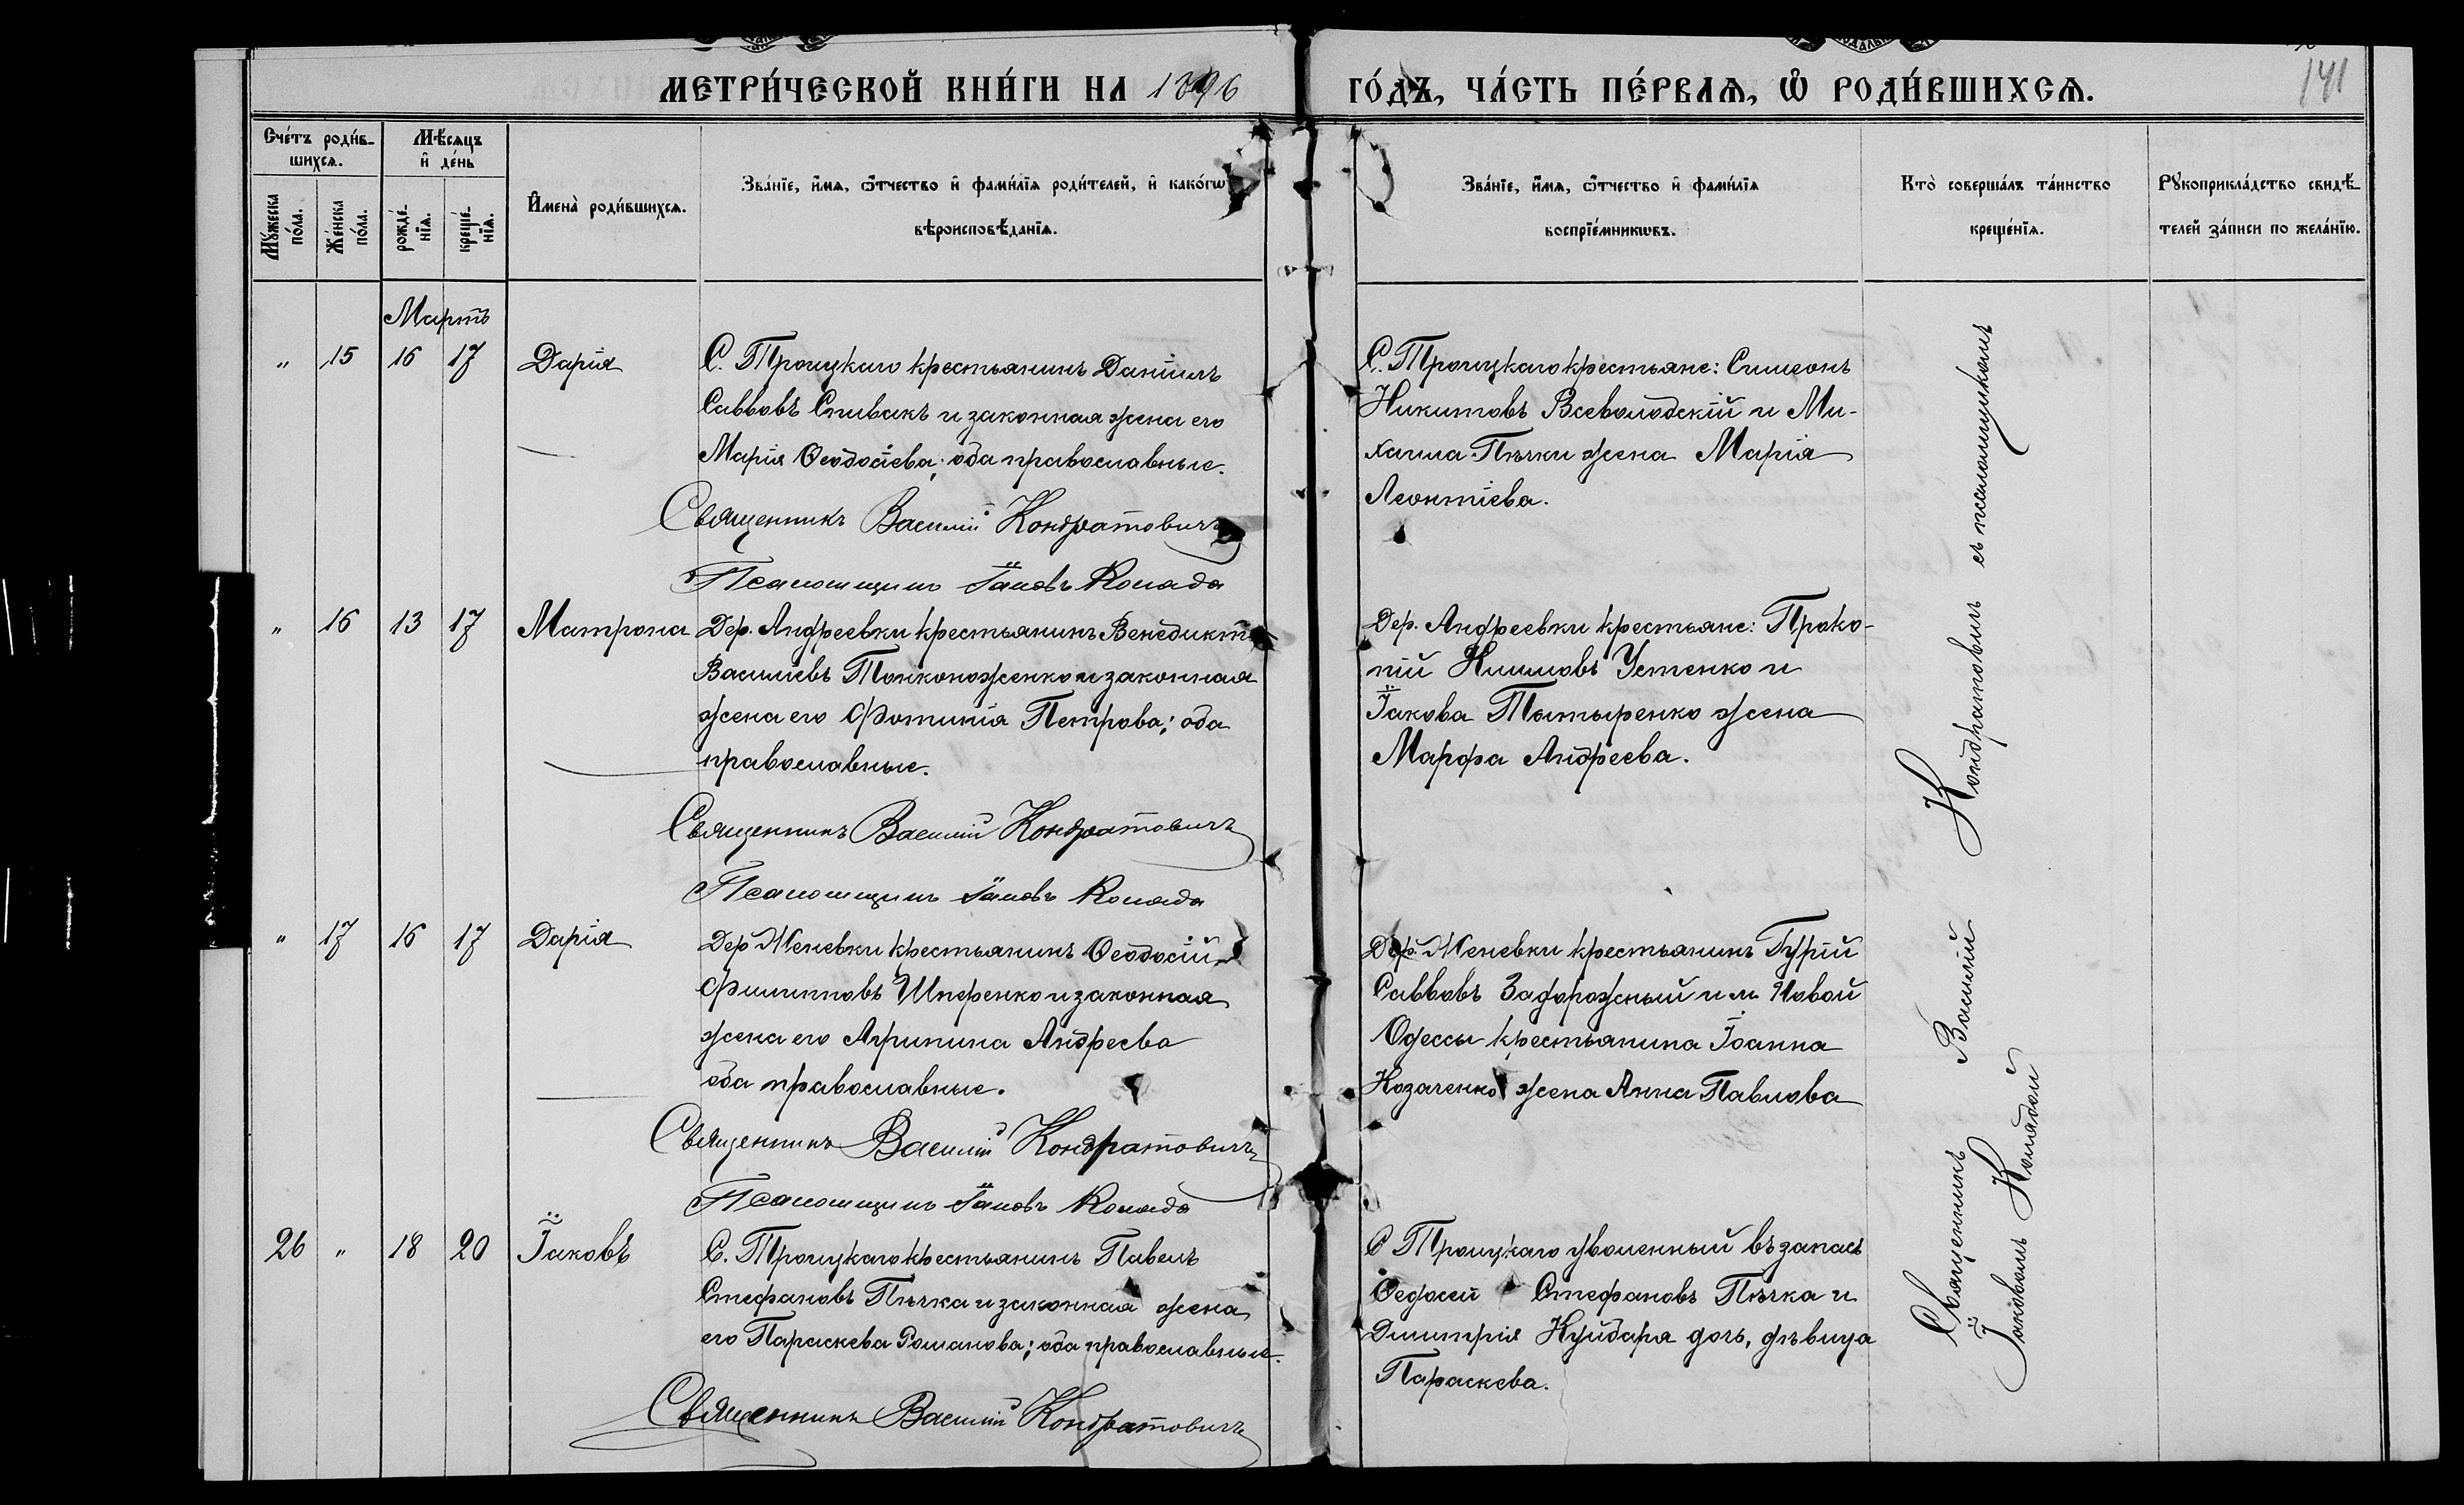 МЕТРИ́ЧЕСКОЙ КНИ́ГИ НА 1896 ГО́ДЪ, ЧА́СТЬ ПЕ́РВАѦ, Ѡ҆ РОДИ́ВШИХСѦ.
141
Сче́тъ роди́в-
шихсѧ.
Мѣ́сѧцъ
и҆ де́нь
Мꙋ́жеска
по́ла.
Же́нска
по́ла.
рожде́-
нїѧ.
креще́-
нїѧ.
И҆мена̀ роди́вшихсѧ.
Зва́нїе, и҆́мѧ, ѻ҆́тчество и҆ фами́лїѧ роди́телей, и҆ како́гѡ
вѣроисповѣ́данїѧ.
Зва́нїе, и҆́мѧ, ѻ҆́тчество и҆ фами́лїѧ
воспрїе́мникѡвъ.
Кто̀ соверша́лъ та́инство
креще́нїѧ.
Рꙋкоприкла́дство свидѣ́-
телей за́писи по жела́нїю.
Мартъ
" 15 16 17 Дарія
С. Троицкаго крестьянинъ Даніилъ
Саввовъ Спивакъ и законная жена его
Марія Ѳеодосіева; оба православные.
Священникъ Василій Кондратовичъ
Псаломщикъ Іаковъ Коляда
С. Троицкаго крестьяне: Симеонъ
Никитовъ Всеволодскій и Ми-
хаила Пѣчки жена Марія
Леонтіева.
" 16 13 17 Матрона
Дер. Андреевки крестьянинъ Венедиктъ
Василіевъ Тонконоженко и законная
жена его Фотинія Петрова; оба
православные.
Священникъ Василій Кондратовичъ
Псаломщикъ Іаковъ Коляда
Дер. Андреевки крестьяне: Проко-
пій Климовъ Устенко и
Іакова Тытыренко жена
Марфа Андреева.
" 17 16 17 Дарія
Дер. Женевки крестьянинъ Ѳеодосій
Филипповъ Шпѳренко и законная
жена его Агрипина Андреева
оба православные.
Священникъ Василій Кондратовичъ
Псаломщикъ Іаковъ Коляда
Дер. Женевки крестьянинъ Гурій
Саввовъ Задорожный и м. Новой
Одессы крестьянина Іоанна
Козаченко жена Анна Павлова
26 " 18 20 Іаковъ
С. Троицкаго крестьянинъ Павелъ
Стефановъ Пѣчка и законная жена
его Параскева Романова; оба православные.
Священникъ Василій Кондратовичъ
С Троицкаго уволенный въ запасъ
Ѳедосей Стефановъ Пѣчка и
Димитрія Куйдаря дочь, дѣвица
Параскева.
Священникъ Василій Кондратовичъ съ псаломщикомъ
Іаковомъ Колядой